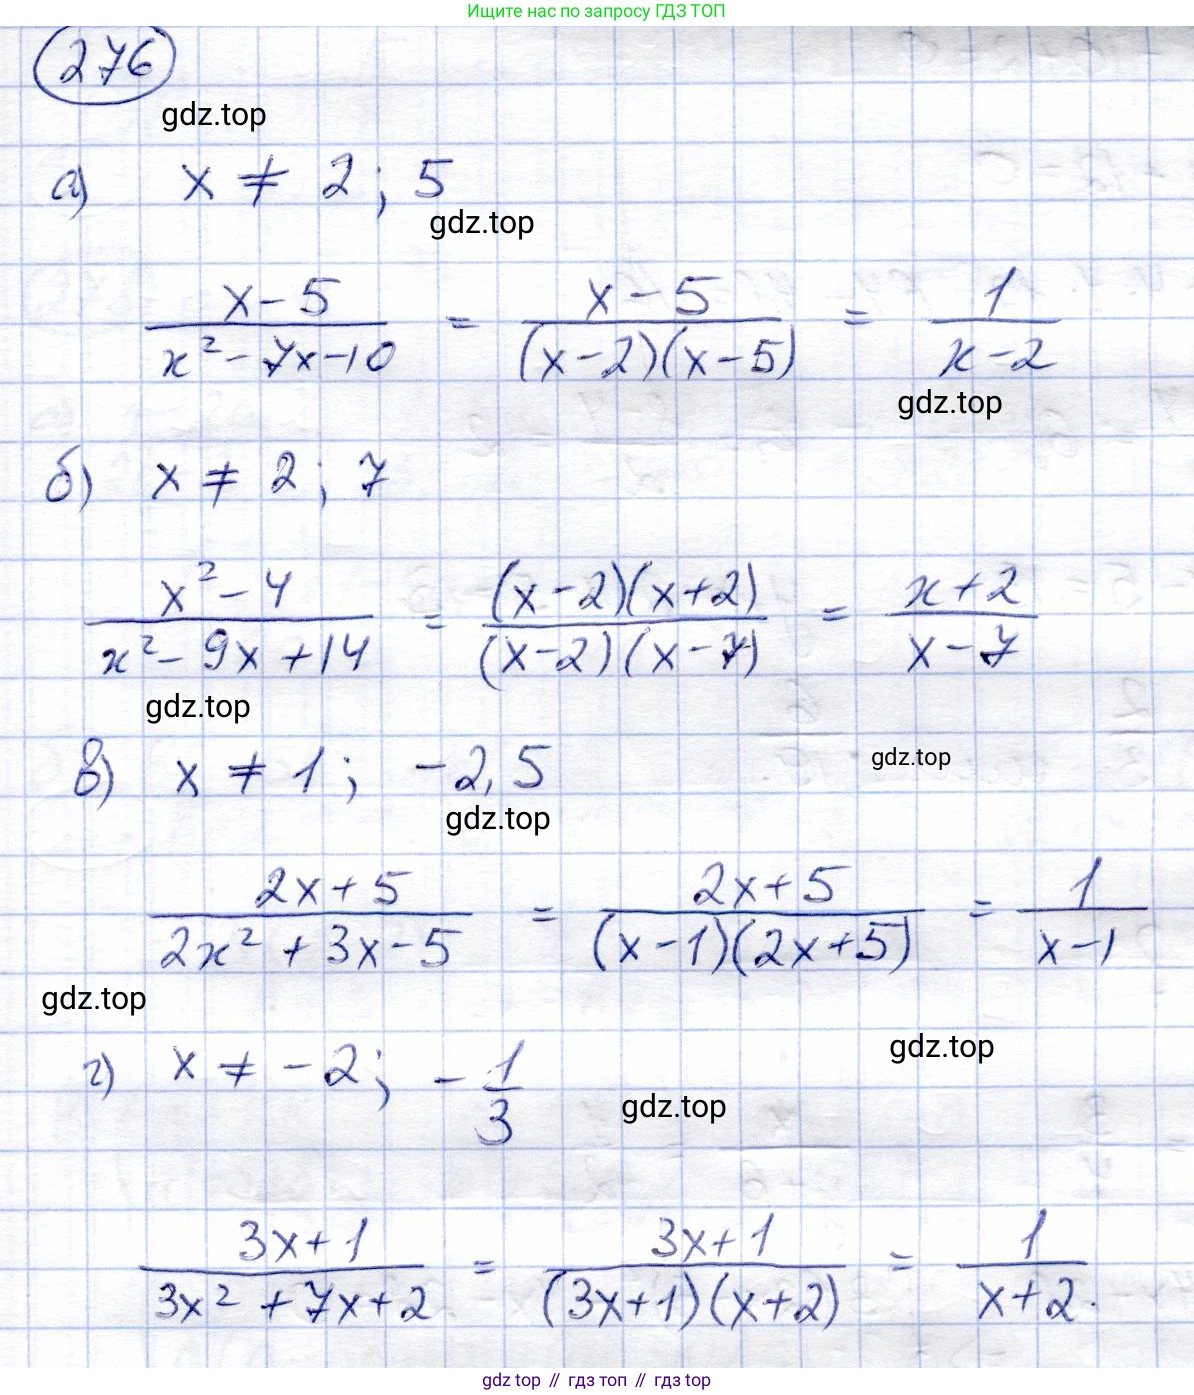 Ищите нас по запросу ГДЗ ТОП
276
gdz.top
а) x ≠ 2; 5
gdz.top
(x-5)/(x²-7x-10) = (x-5)/((x-2)(x-5)) = 1/(x-2)
gdz.top
б) x ≠ 2; 7
(x²-4)/(x²-9x+14) = ((x-2)(x+2))/((x-2)(x-7)) = (x+2)/(x-7)
gdz.top
в) x ≠ 1; -2,5
gdz.top
gdz.top
(2x+5)/(2x²+3x-5) = (2x+5)/((x-1)(2x+5)) = 1/(x-1)
gdz.top
г) x ≠ -2; -1/3
gdz.top
gdz.top
(3x+1)/(3x²+7x+2) = (3x+1)/((3x+1)(x+2)) = 1/(x+2).
gdz top // гдз топ // гдз top